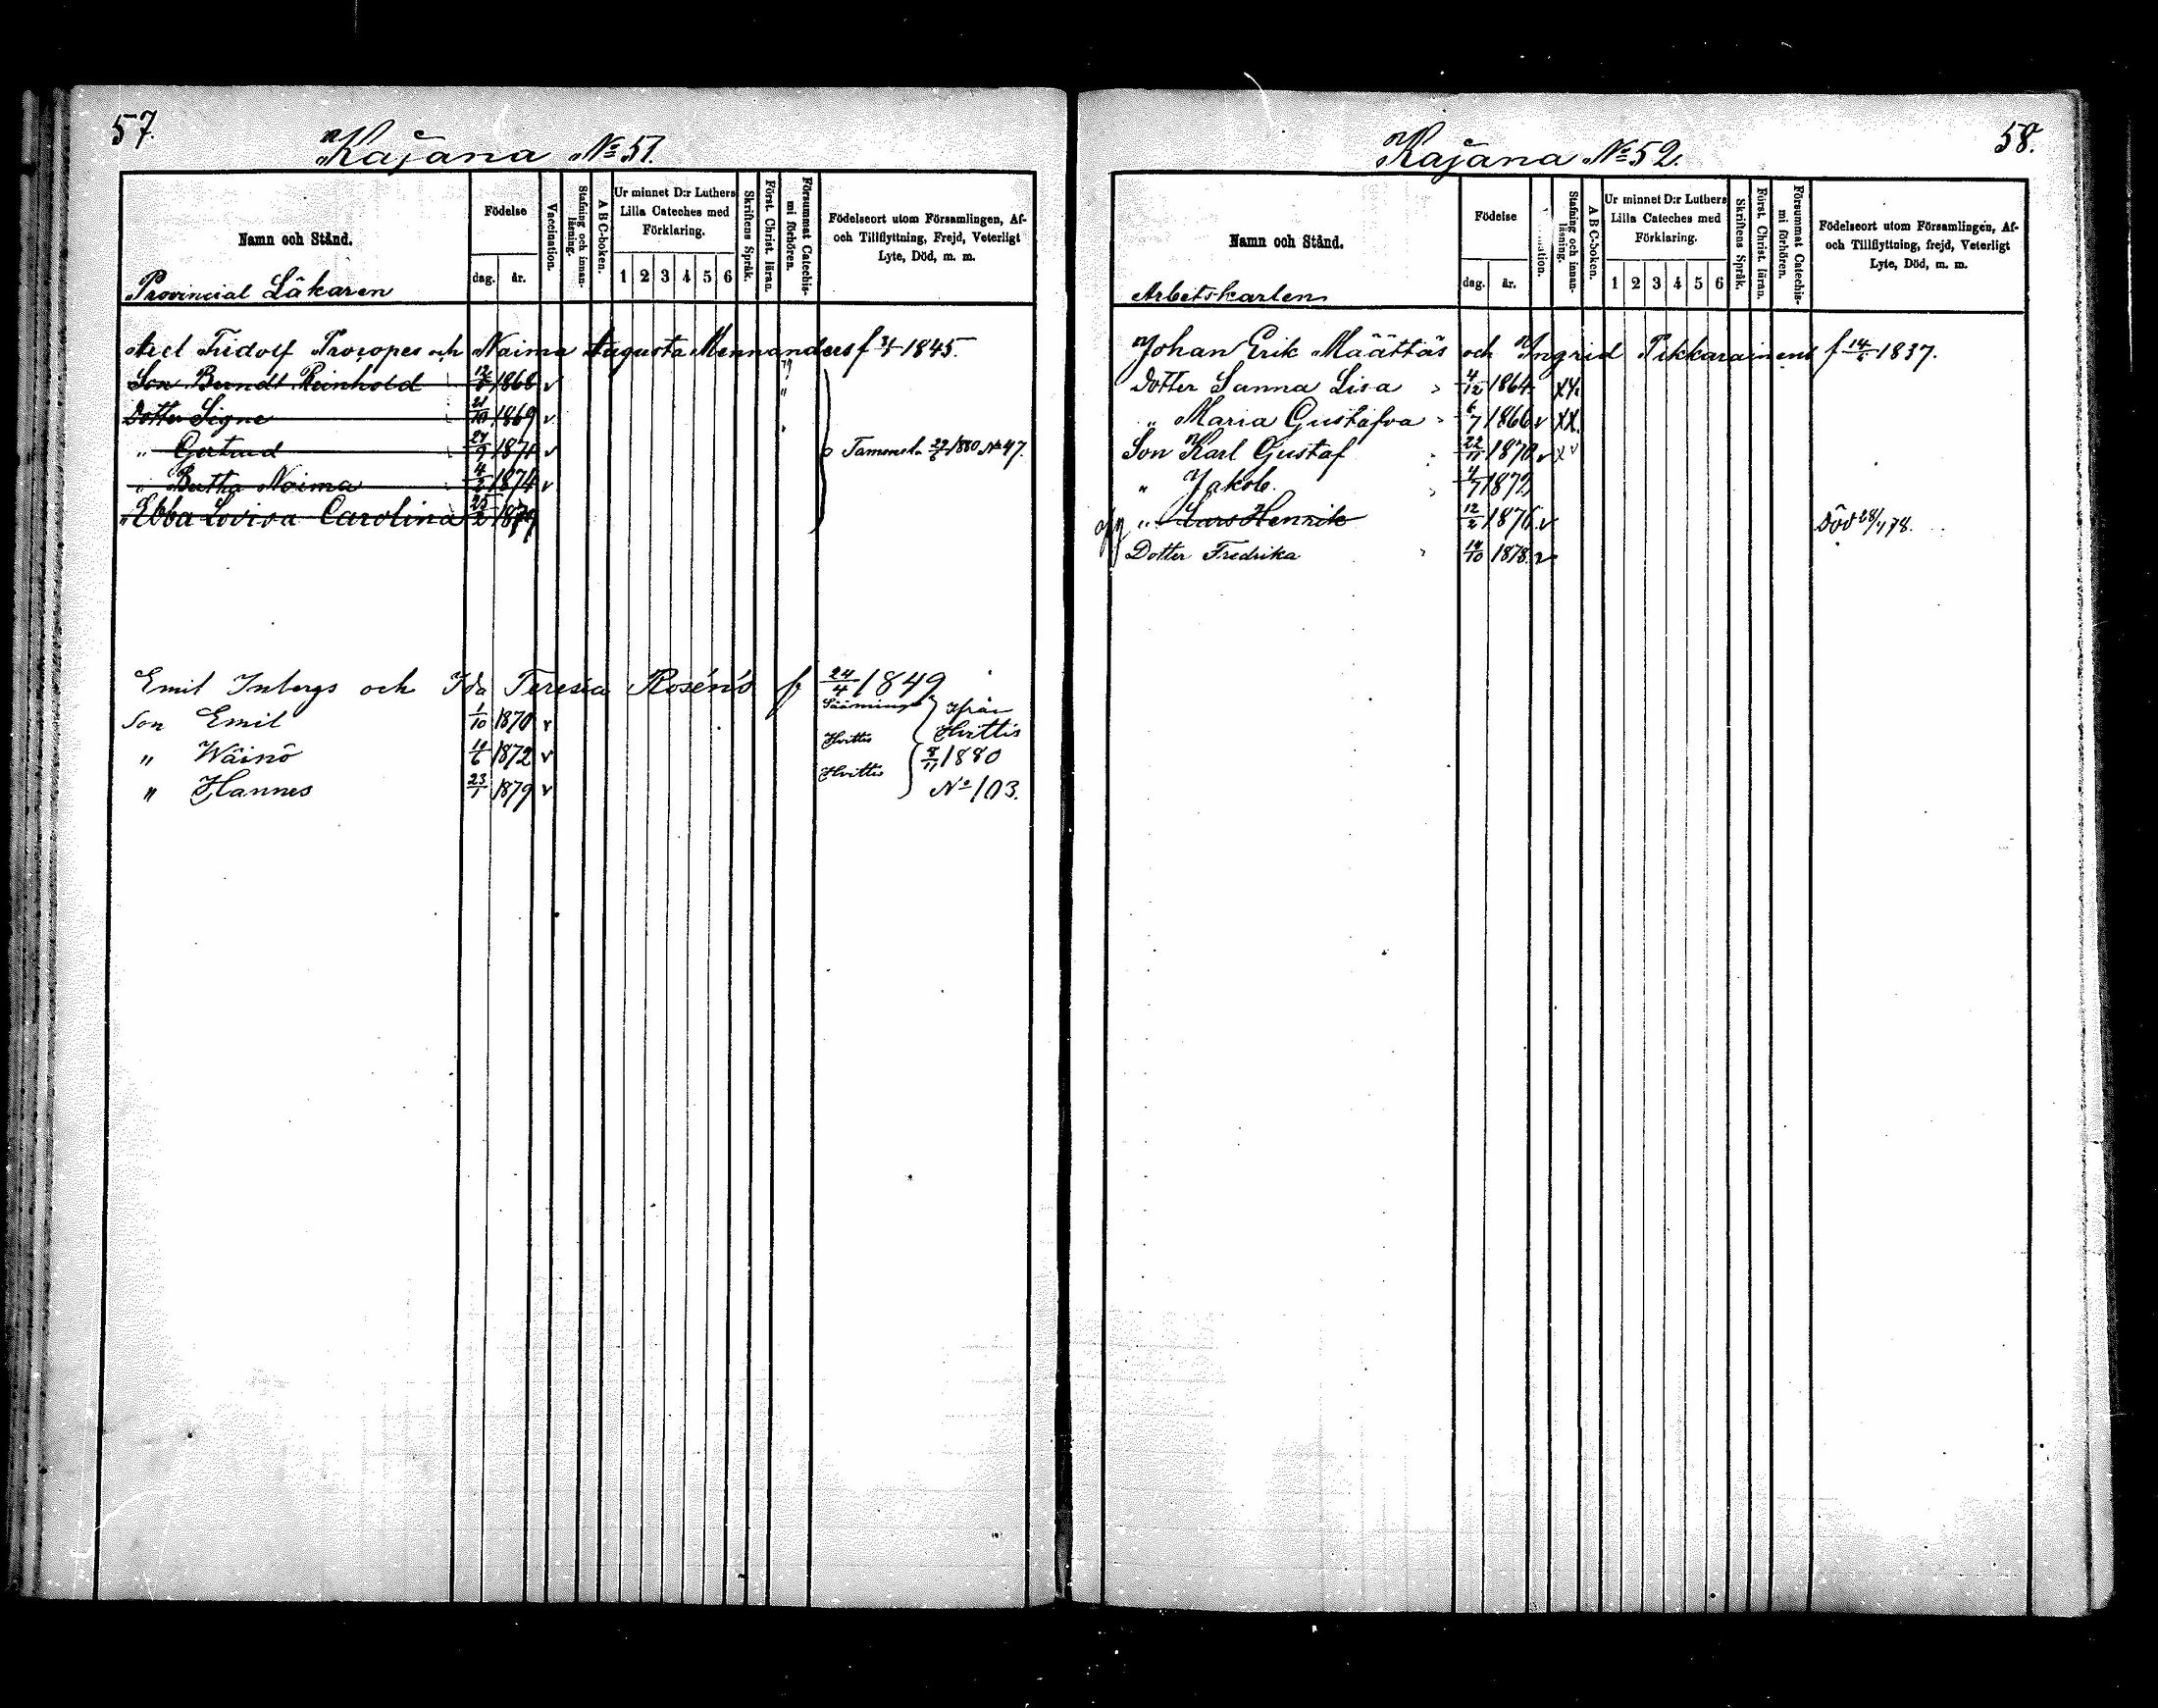 57.
Kajana No 51.
Namn och Stånd.
Födelse
dag.
år.
Vaccination.
Stafning och innan-läsning.
A B C-boken.
Ur minnet D:r Luthers
Lilla Cateches med
Förklaring.
1 2 3 4 5 6
Skriftens Språk.
Först. Christ. läran.
Försummat Catechis-mi förhören.
Födelseort utom Församlingen, Af-
och Tillflyttning, Frejd, Veterligt
Lyte, Död, m. m.
Provincial Läkaren
Axel Fridolf Procopes och Naima Augusta Mennanders f 1845.
Son Berndt Reinhold 1868 v
Dotter Signe 21/10 1869 v
" Gertrud 1871 v
Tammela 22/6 1880 No 47.
" Bertha Naima 4/2 1874 v
" Ebba Lovisa Carolina 25/2
Emil Inbergs och Ida Teresia Roséns f 24/4 1849
Son Emil 1/10 1870 v Ifrån
" Wäinö 1872 v Hvittis Hvittis
" Hannes 23/1 1879 v Hvittis 8/11 1880
No 103.
58.
Kajana No 52.
Namn och Stånd.
Födelse
dag.
år.
Stafning och innan-läsning.
A B C-boken.
Ur minnet D:r Luthers
Lilla Cateches med
Förklaring.
1 2 3 4 5 6
Skriftens Språk.
Först. Christ. läran.
Försummat Catechis-mi förhören.
Födelseort utom Församlingen, Af-
och Tillflyttning, frejd, Veterligt
Lyte, Död, m. m.
Arbetskarlen
Johan Erik Määttäs och Ingrid Pikkarainens f 1837.
Dotter Sanna Lisa 4/12 1864 XX.
" Maria Gustafva 6/7 1866 v XX.
Son Karl Gustaf 22/11 1870 v
" Jakob. 4/7
" Lars Henrik 12/2 1876 v Död 28/4 78.
Dotter Fredrika 14/10 1878 v